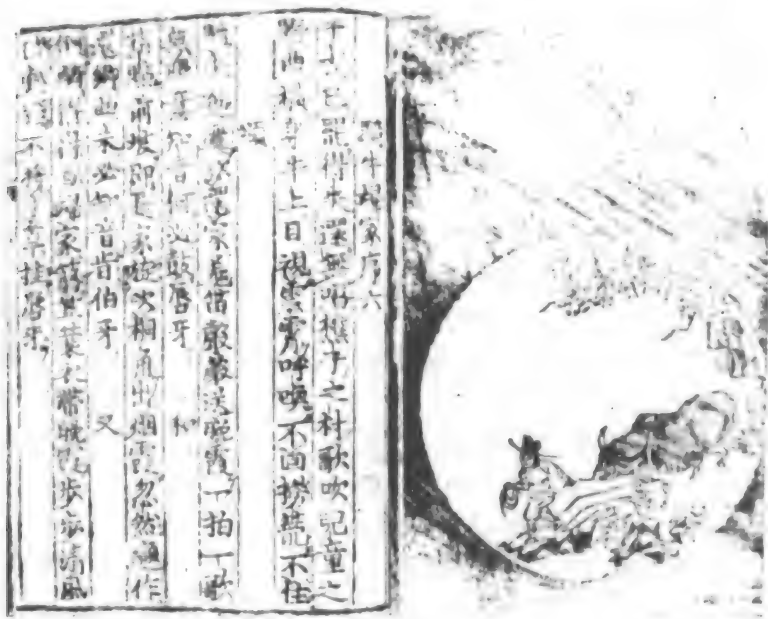 騎牛歸家序六
干戈已罷得失還無唱樵子之村歌吹兒童之
野曲橫身牛上目視雲霄呼喚不回撈籠不住
頌
騎牛迤邐欲還家羌笛聲聲送晚霞一拍一歌
無限意知音何必鼓唇牙 和
指點前坡即是家旋吹桐角出煙霞忽然變作
還鄉曲未必知音肯伯牙 又
倒騎得得自歸家篛笠蓑衣帶晚霞步步清風
行處穩不將寸草挂唇牙